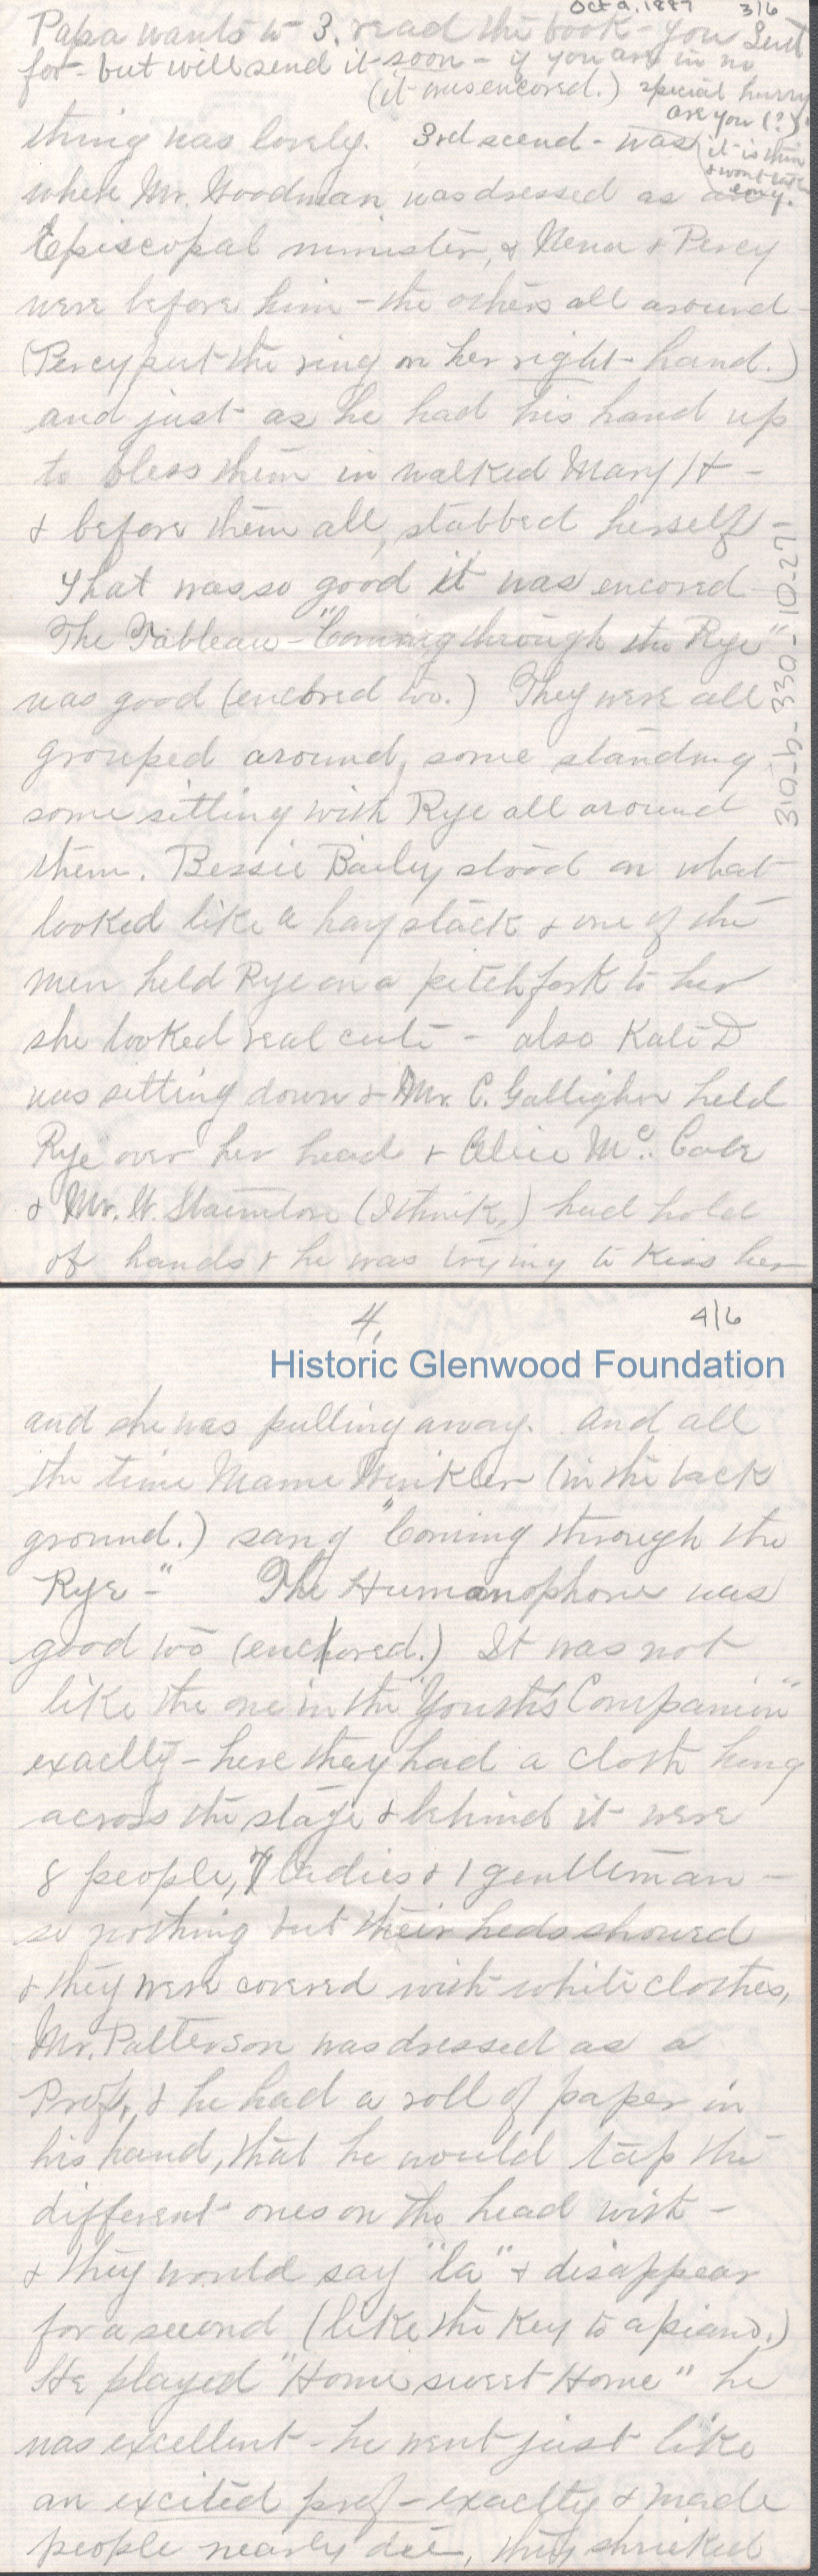 Oct 9, 1887 3/6
Papa wants to 3. read the book - you sent
for - but will send it soon - if you are in no
(it was encored.) special hurry
are you (?)
thing was lovely. 3rd scend - was (it is thin
& wont take
long.
where Mr. Woodman was dressed as an
Episcopal minister, & Nena & Percy
were before him - the others all around -
(Percy put the ring on her right - hand.)
and just as he had his hand up
to bless them in walked Mary H -
& before them all, stabbed herself -
That was so good it was encored
The Tableau - "Coming through the Rye"
was good (encored too.) They were all
grouped around, some standing
some sitting with Rye all around
them. Bessie Baily stood on what
looked like a hay stack & one of the
men held Rye on a pitch fork to her
she looked real cute - also Kate D
was sitting down & Mr. C. Galligher held
Rye over her head & Alice Mc. Cabe
& Mr. W. Stainton (I think,) had hold
of hands & he was trying to kiss her
310-b-330-10-27
4, 4/6
Historic Glenwood Foundation
and she was pulling away. And all
the time Mame Winkler (in the back
ground.) sang "Coming through the
Rye -" The Humanophone was
good too (encored.) It was not
like the one in the "Youth's Companion"
exactly - here they had a cloth hung
across the stage & behind it were
8 people, 7 ladies & 1 gentleman -
so nothing but their heds showed
& they were covered with white clothes,
Mr. Patterson was dressed as a
Prof, & he had a roll of paper in
his hand, that he would tap the
different ones on the head with -
& they would say "la" & disappear
for a second (like the key to a piano.)
He played "Home sweet Home" he
was excellent - he went just like
an excited prof - exactly & made
people nearly die, they shrieked